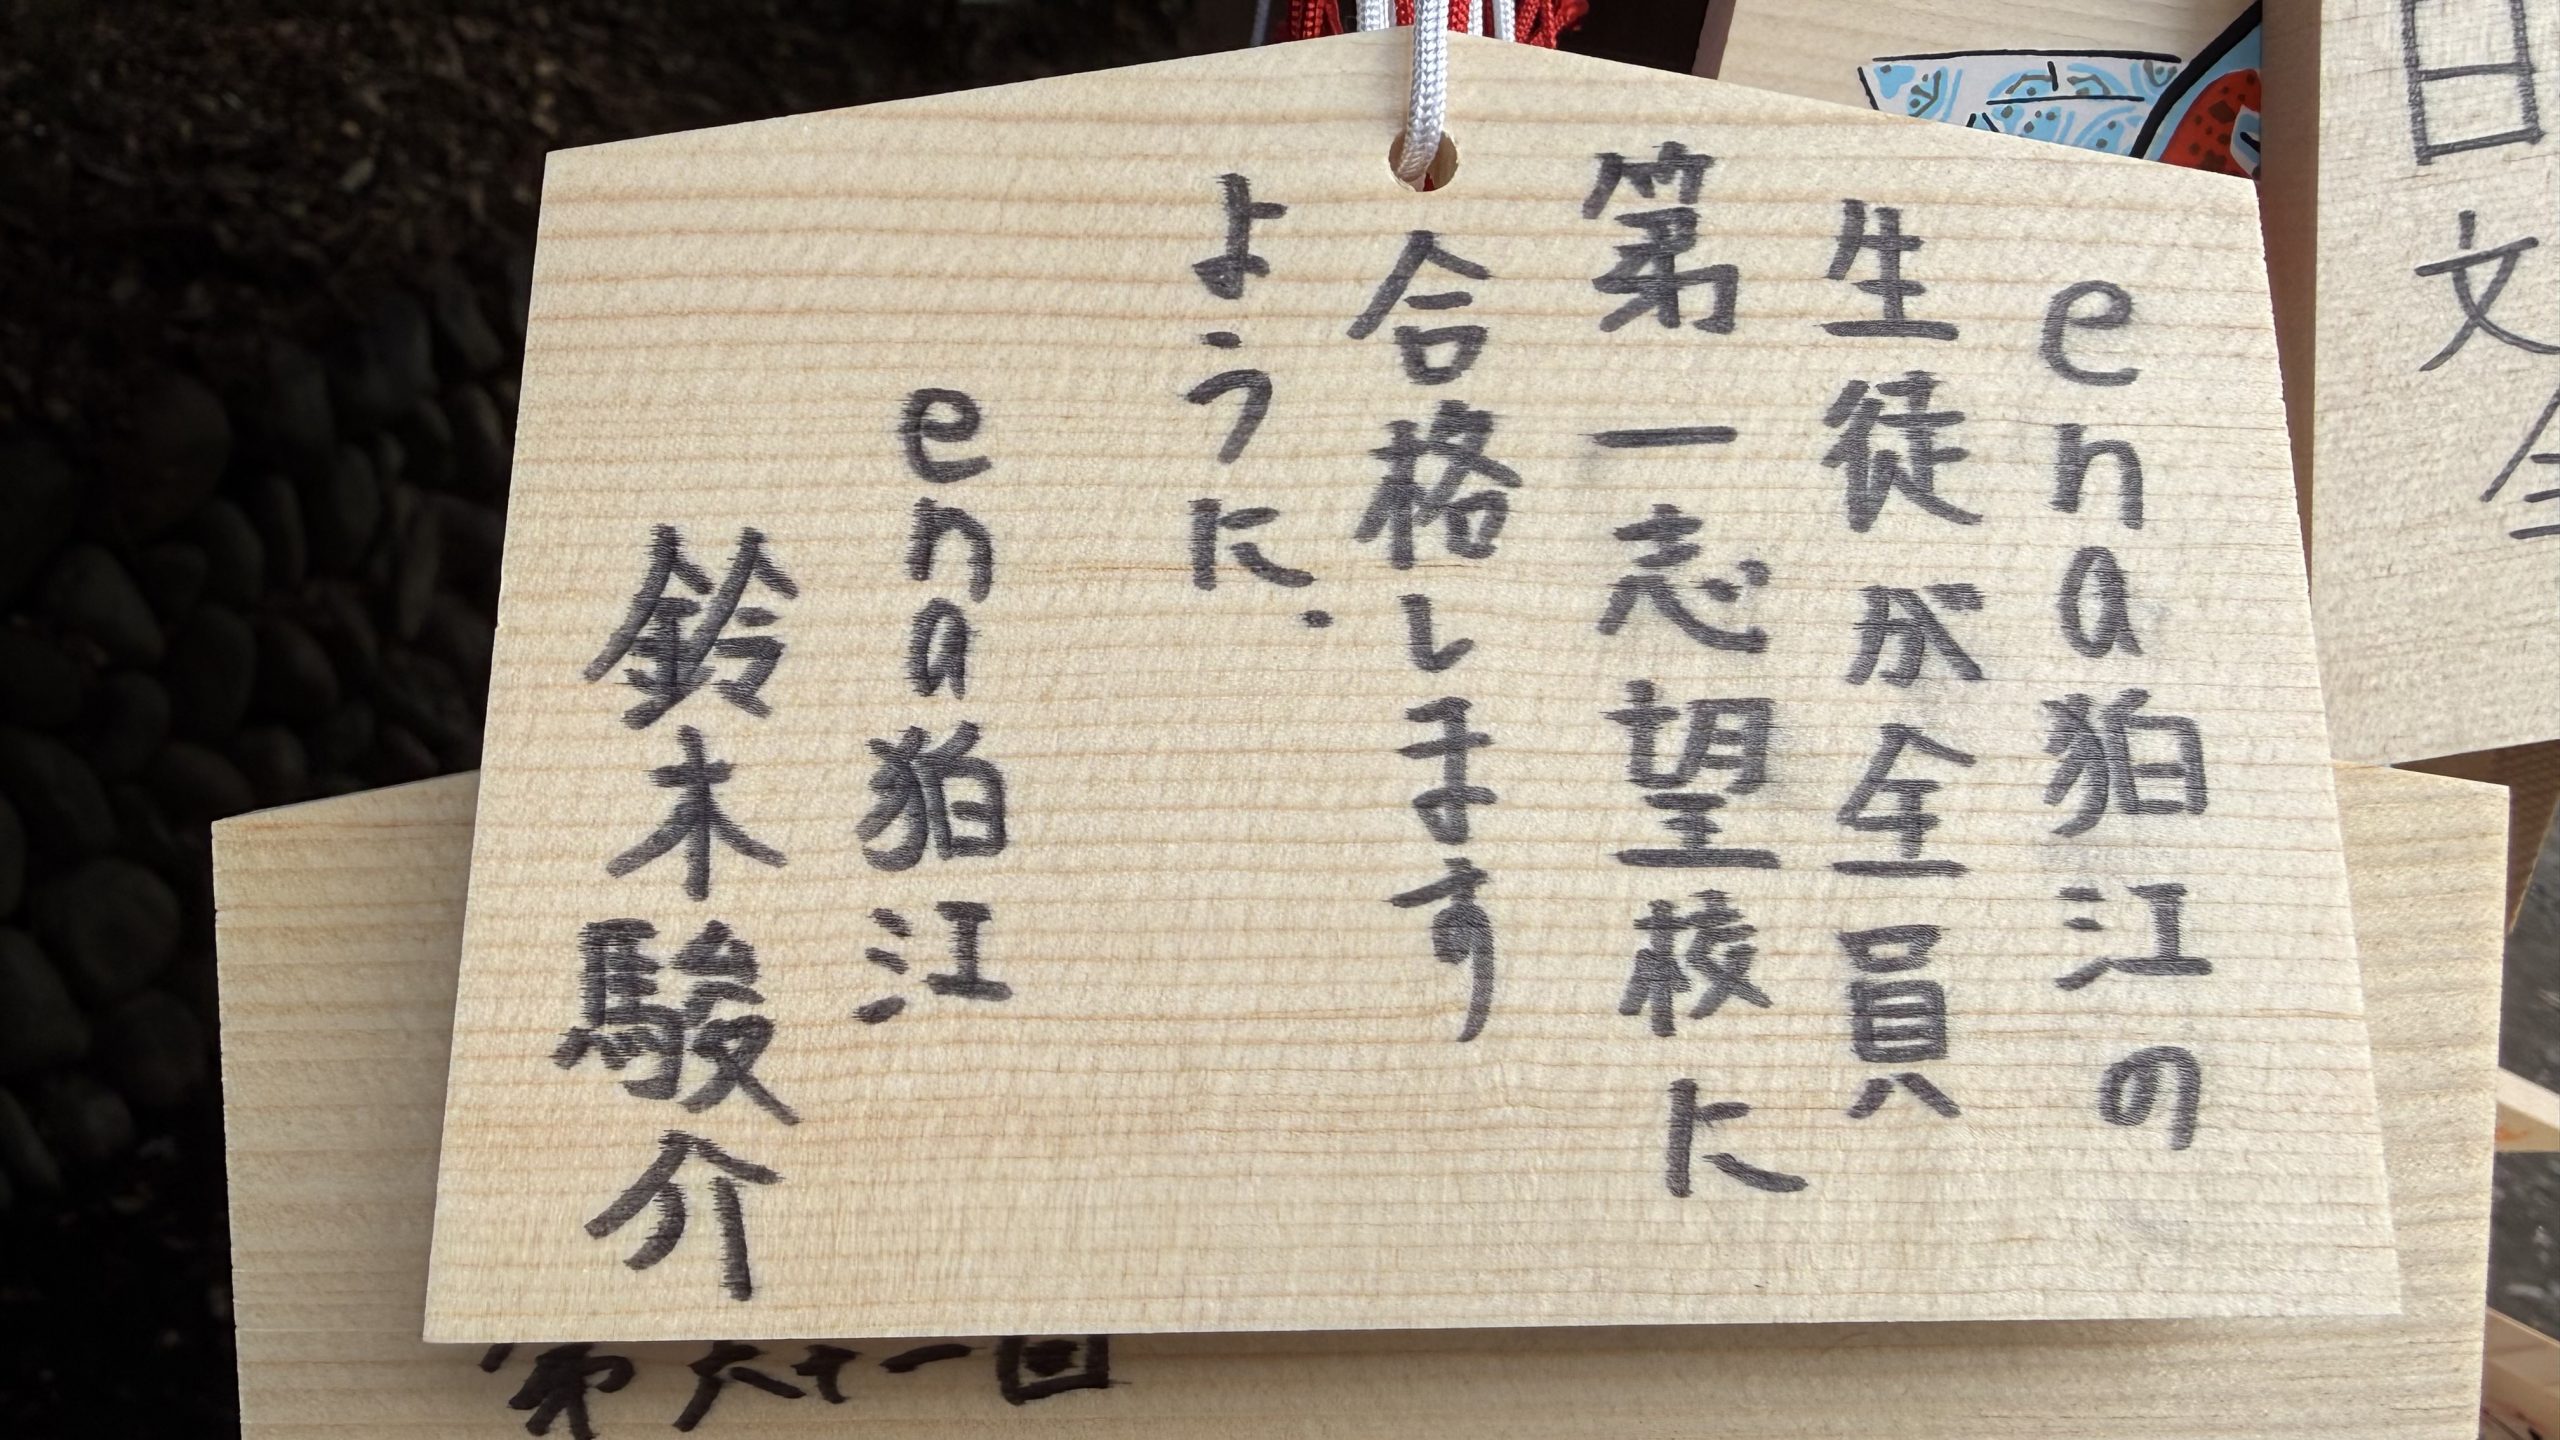 ena狛江の
生徒が全員
第一志望校に
合格します
ように.
ena狛江
鈴木駿介
第六十一回
日
文
全